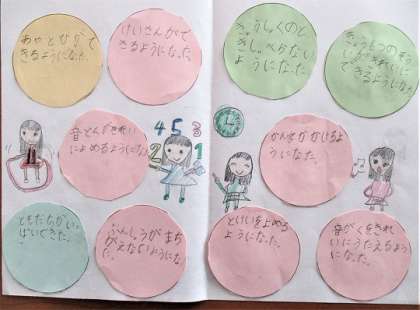 あやとびがで
きるようになった。
けいさんが
できるようになった。
音どくがきれい
によめるようになった。
4 5 3
2 1
ともだちがい
ぱいできた。
ぶんしょうがまち
がえないようになっ
た。
きゅうしくのと
きしゃべらない
ようになった
できるようになった。
かん字がかけるよ
うになった。
とけいをよめる
ようになった。
音がくをきれ
いにうたえるよう
になった。